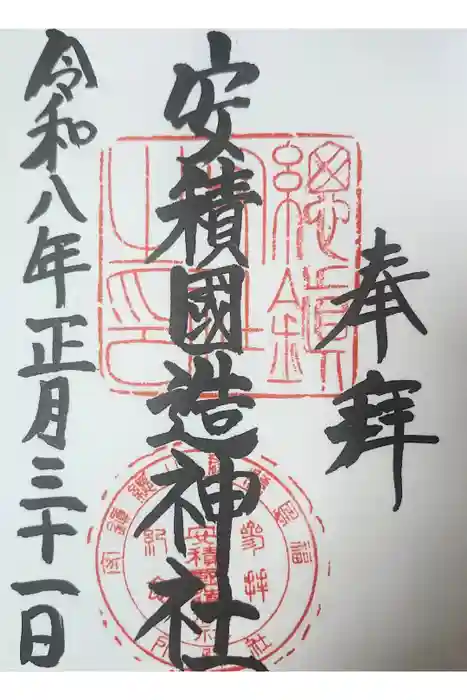 奉拝
安積國造神社
令和八年正月三十一日
總鎮